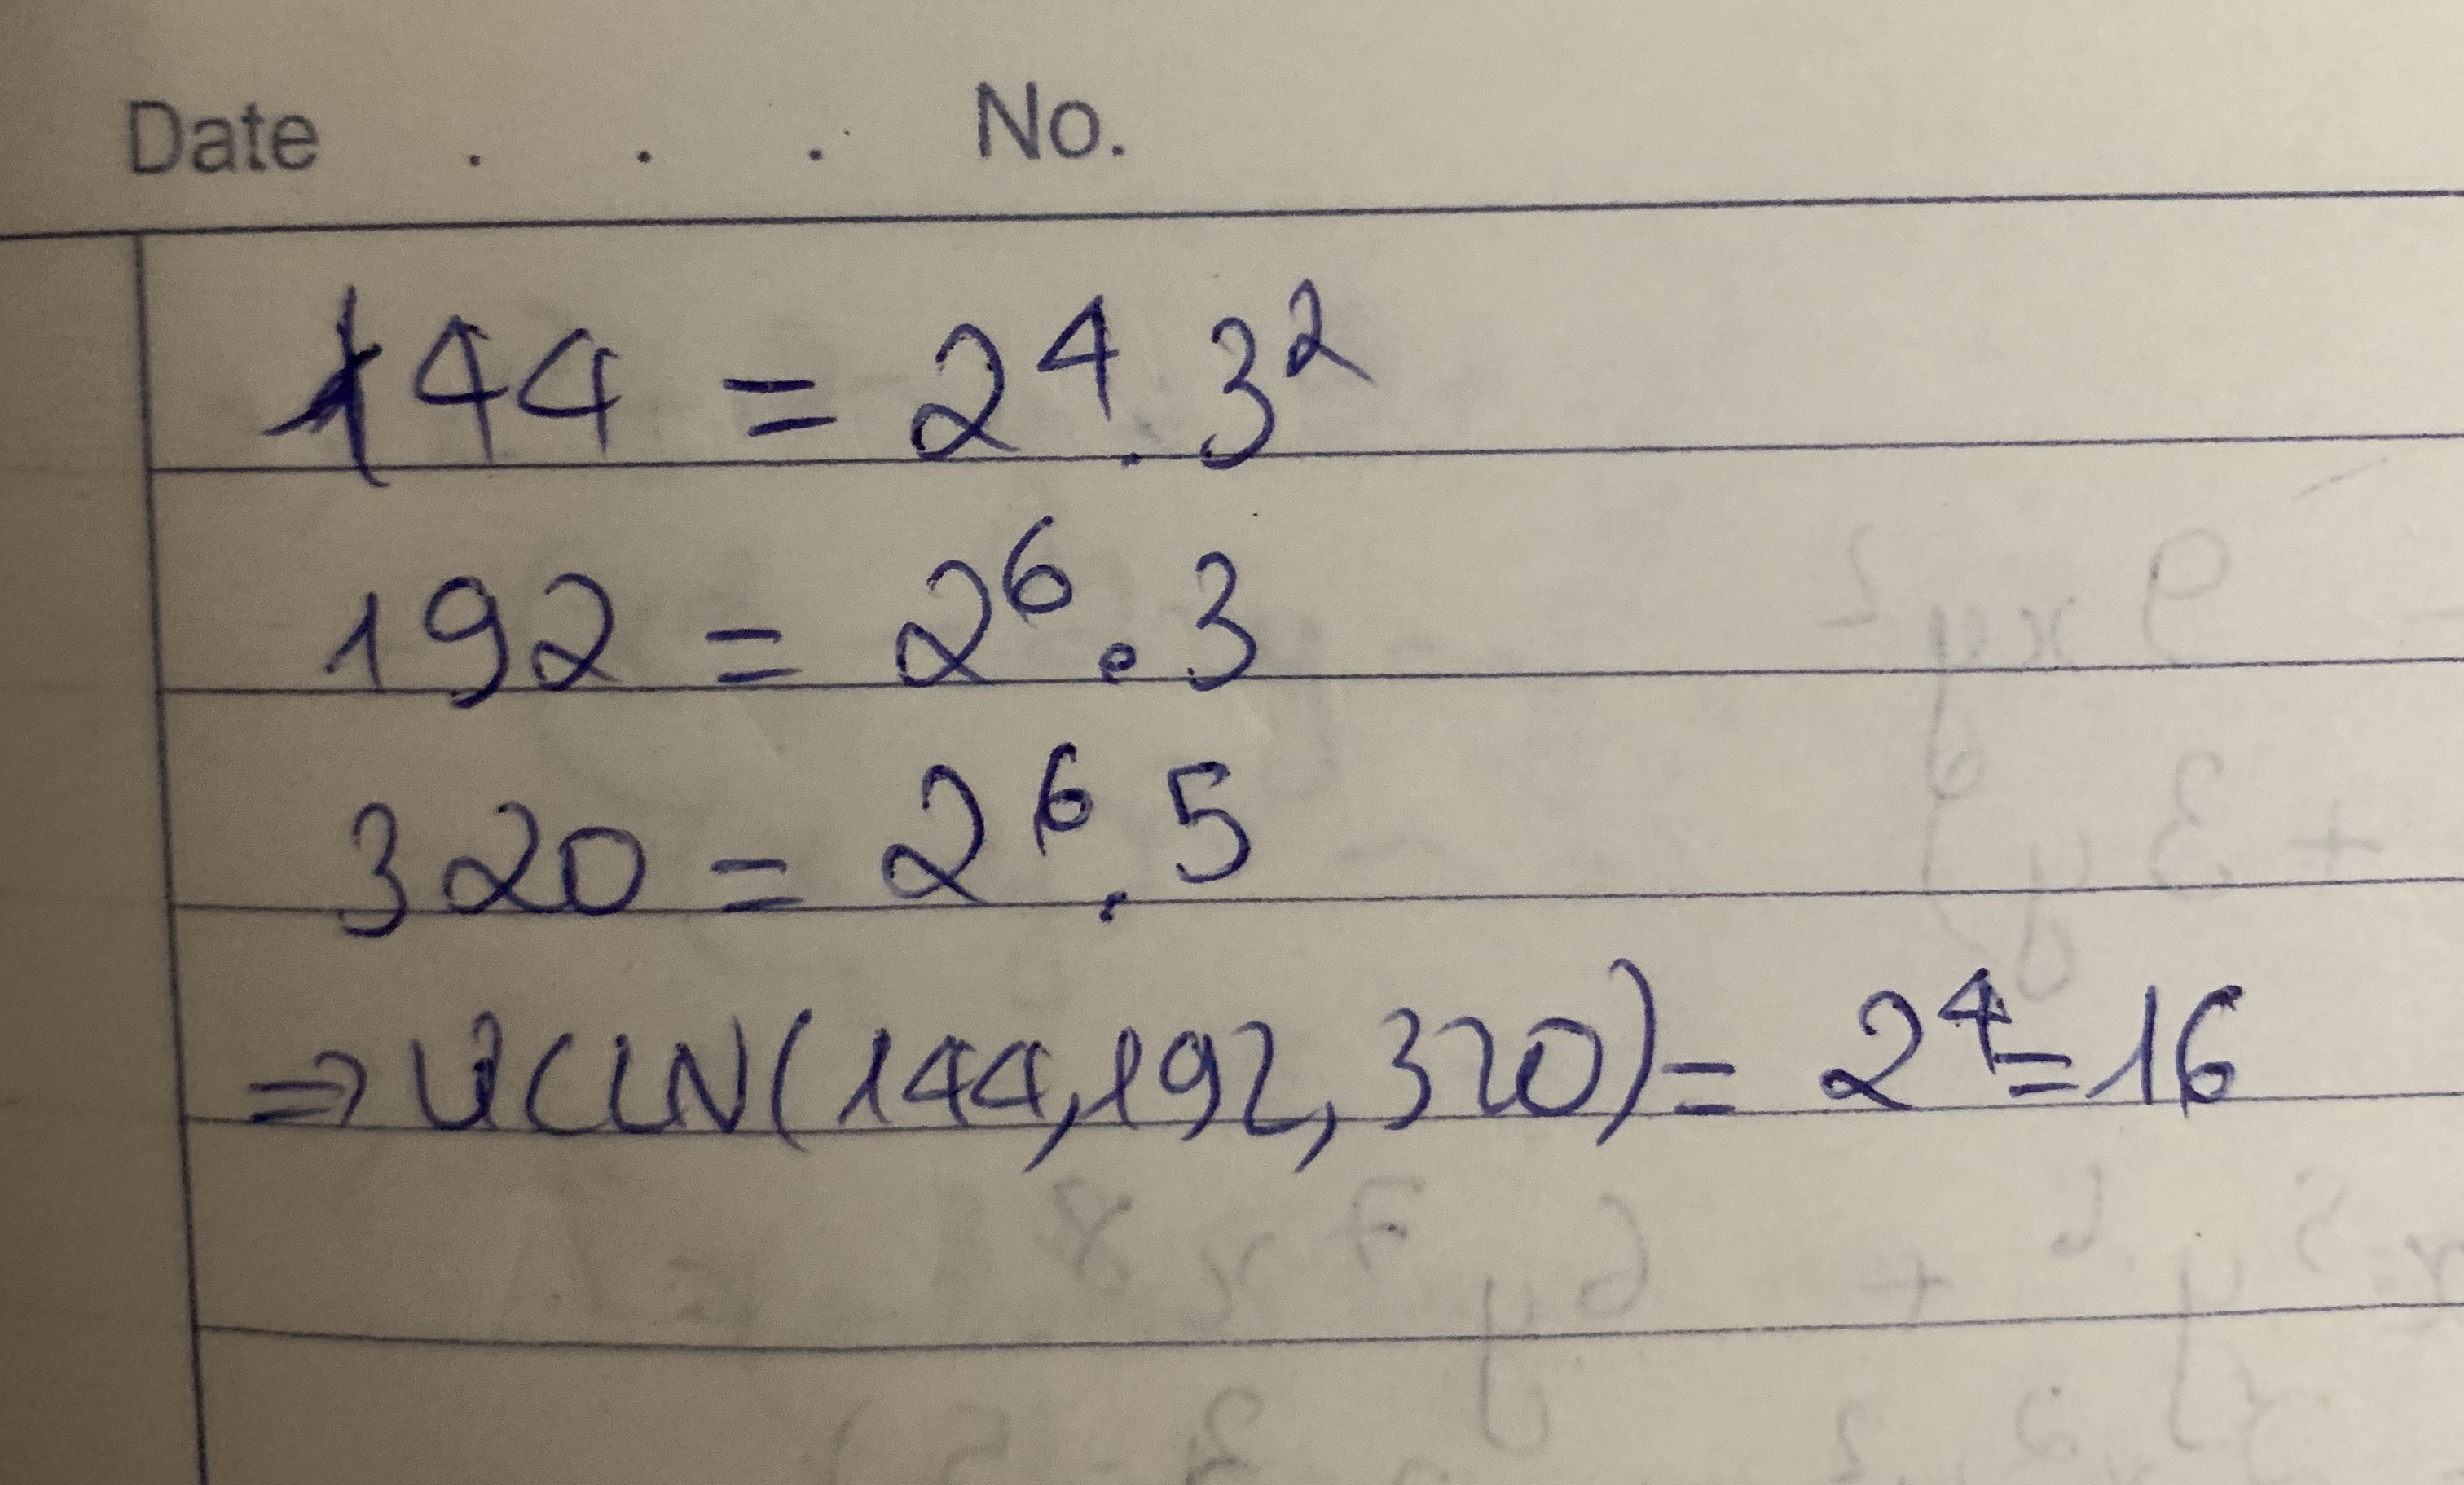 Date . . . No.
144 = 2⁴ . 3²
192 = 2⁶ . 3
320 = 2⁶ . 5
⇒ ƯCLN(144,192,320) = 2⁴ = 16